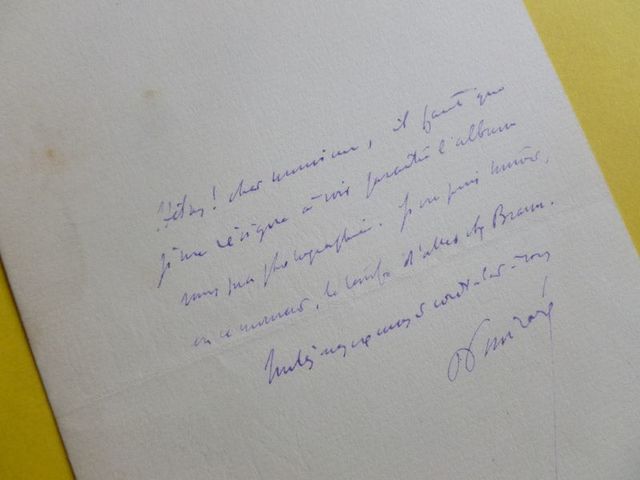 Hélas! cher monsieur, il faut que
je me résigne à voir paraître l'album
sans ma photographie. Je ne puis trouver,
en ce moment, le temps d'aller chez Braun.
regrets et cordialement à vous